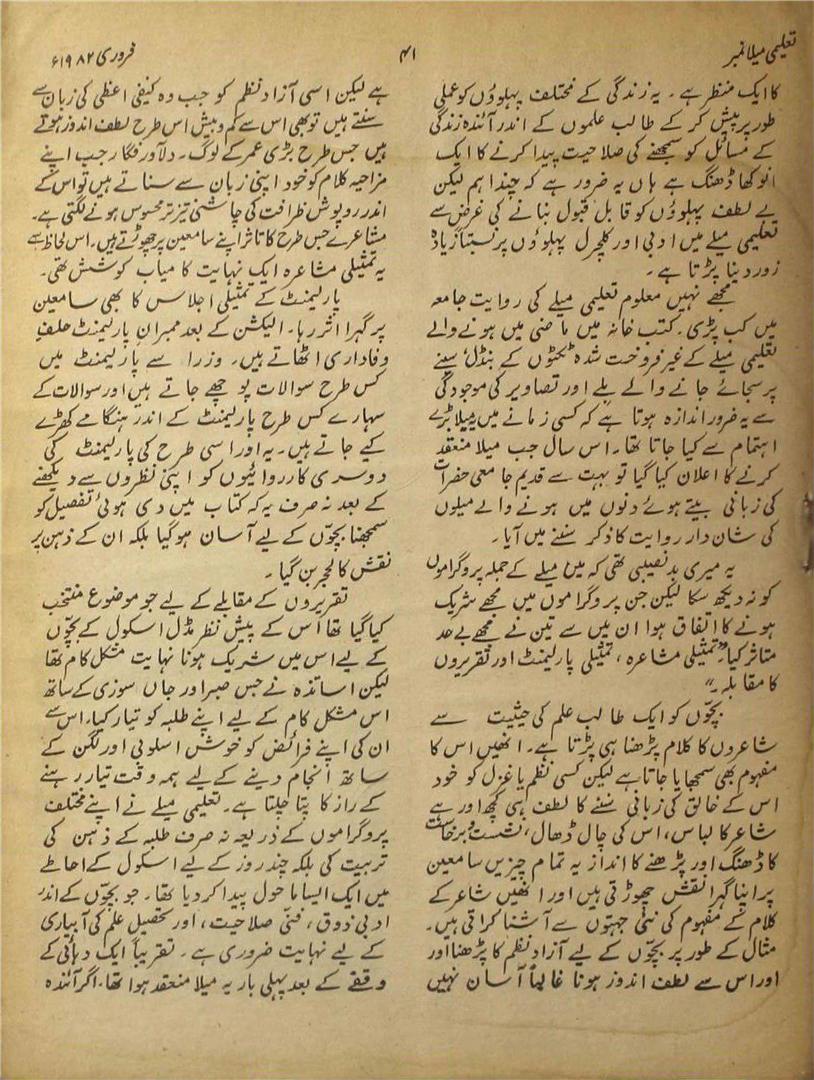 تعلیمی میلا نمبر
۴۱
فروری ۱۹۸۲ء
کا ایک منظر ہے۔ یہ زندگی کے مختلف پہلوؤں کو عملی
طور پر پیش کر کے طالب علموں کے اندر آئندہ زندگی
کے مسائل کو سمجھنے کی صلاحیت پیدا کرنے کا ایک
انوکھا ڈھنگ ہے ہاں یہ ضرور ہے کہ چند اہم لیکن
بے لطف پہلوؤں کو قابل قبول بنانے کی غرض سے
تعلیمی میلے میں ادبی اور کلچرل پہلوؤں پر نسبتاً زیادہ
زور دینا پڑتا ہے۔
مجھے نہیں معلوم تعلیمی میلے کی روایت جامعہ
میں کب پڑی۔ کتب خانہ میں ماضی میں ہونے والے
تعلیمی میلے کے غیر فروخت شدہ ٹکٹوں کے بنڈل، سینے
پر سجائے جانے والے بلے اور تصاویر کی موجودگی
سے یہ ضرور اندازہ ہوتا ہے کہ کسی زمانے میں یہ میلا بڑے
اہتمام سے کیا جاتا تھا۔ اس سال جب میلا منعقد
کرنے کا اعلان کیا گیا تو بہت سے قدیم جامعی حضرات
کی زبانی بیتے ہوئے دنوں میں ہونے والے میلوں
کی شان دار روایت کا ذکر سننے میں آیا۔
یہ میری بدنصیبی تھی کہ میں میلے کے جملہ پروگراموں
کو نہ دیکھ سکا لیکن جن پروگراموں میں مجھے شریک
ہونے کا اتفاق ہوا ان میں سے تین نے مجھے بے حد
متاثر کیا۔ "تمثیلی مشاعرہ، تمثیلی پارلیمنٹ اور تقریروں
کا مقابلہ۔"
بچّوں کو ایک طالب علم کی حیثیت سے
شاعروں کا کلام پڑھنا ہی پڑتا ہے۔ انھیں اس کا
مفہوم بھی سمجھایا جاتا ہے لیکن کسی نظم یا غزل کو خود
اس کے خالق کی زبانی سننے کا لطف ہی کچھ اور ہے
شاعر کا لباس، اس کی چال ڈھال، نشست و برخاست
کا ڈھنگ اور پڑھنے کا انداز یہ تمام چیزیں سامعین
پر اپنا گہرا نقش چھوڑتی ہیں اور انھیں شاعر کے
کلام کے مفہوم کی نئی جہتوں سے آشنا کراتی ہیں۔
مثال کے طور پر بچّوں کے لیے آزاد نظم کا پڑھنا اور
اور اس سے لطف اندوز ہونا غالباً آسان نہیں
ہے لیکن اسی آزاد نظم کو جب وہ کیفی اعظمی کی زبان سے
سنتے ہیں تو بھی اس سے کم و بیش اس طرح لطف اندوز ہوتے
ہیں جس طرح بڑی عمر کے لوگ۔ دلاور فگار جب اپنے
مزاحیہ کلام کو خود اپنی زبان سے سناتے ہیں تو اس کے
اندر روپوش ظرافت کی چاشنی تیز تر محسوس ہونے لگتی ہے۔
مشاعرے جس طرح کا تاثر اپنے سامعین پر چھوڑتے ہیں۔ اس لحاظ سے
یہ تمثیلی مشاعرہ ایک نہایت کامیاب کوشش تھی۔
پارلیمنٹ کے تمثیلی اجلاس کا بھی سامعین
پر گہرا اثر رہا۔ الیکشن کے بعد ممبران پارلیمنٹ حلفِ
وفاداری اٹھاتے ہیں۔ وزرا سے پارلیمنٹ میں
کس طرح سوالات پوچھے جاتے ہیں اور سوالات کے
سہارے کس طرح پارلیمنٹ کے اندر ہنگامے کھڑے
کیے جاتے ہیں۔ یہ اور اسی طرح کی پارلیمنٹ کی
دوسری کارروائیوں کو اپنی نظروں سے دیکھنے
کے بعد نہ صرف یہ کہ کتاب میں دی ہوئی تفصیل کو
سمجھنا بچّوں کے لیے آسان ہوگیا بلکہ ان کے ذہن پر
نقش کالحجر بن گیا۔
تقریروں کے مقابلے کے لیے جو موضوع منتخب
کیا گیا تھا اس کے پیش نظر مڈل اسکول کے بچّوں
کے لیے اس میں شریک ہونا نہایت مشکل کام تھا
لیکن اساتذہ نے جس صبر اور جاں سوزی کے ساتھ
اس مشکل کام کے لیے اپنے طلبہ کو تیار کیا، اس سے
ان کی اپنے فرائض کو خوش اسلوبی اور لگن کے
ساتھ انجام دینے کے لیے ہمہ وقت تیار رہنے
کے راز کا پتا چلتا ہے۔ تعلیمی میلے نے اپنے مختلف
پروگراموں کے ذریعہ نہ صرف طلبہ کے ذہن کی
تربیت کی بلکہ چند روز کے لیے اسکول کے احاطے
میں ایک ایسا ماحول پیدا کر دیا تھا۔ جو بچّوں کے اندر
ادبی ذوق، فنّی صلاحیت، اور تحصیل علم کی آبیاری
کے لیے نہایت ضروری ہے۔ تقریباً ایک دہائی کے
وقفے کے بعد پہلی بار یہ میلا منعقد ہوا تھا۔ اگر آئندہ